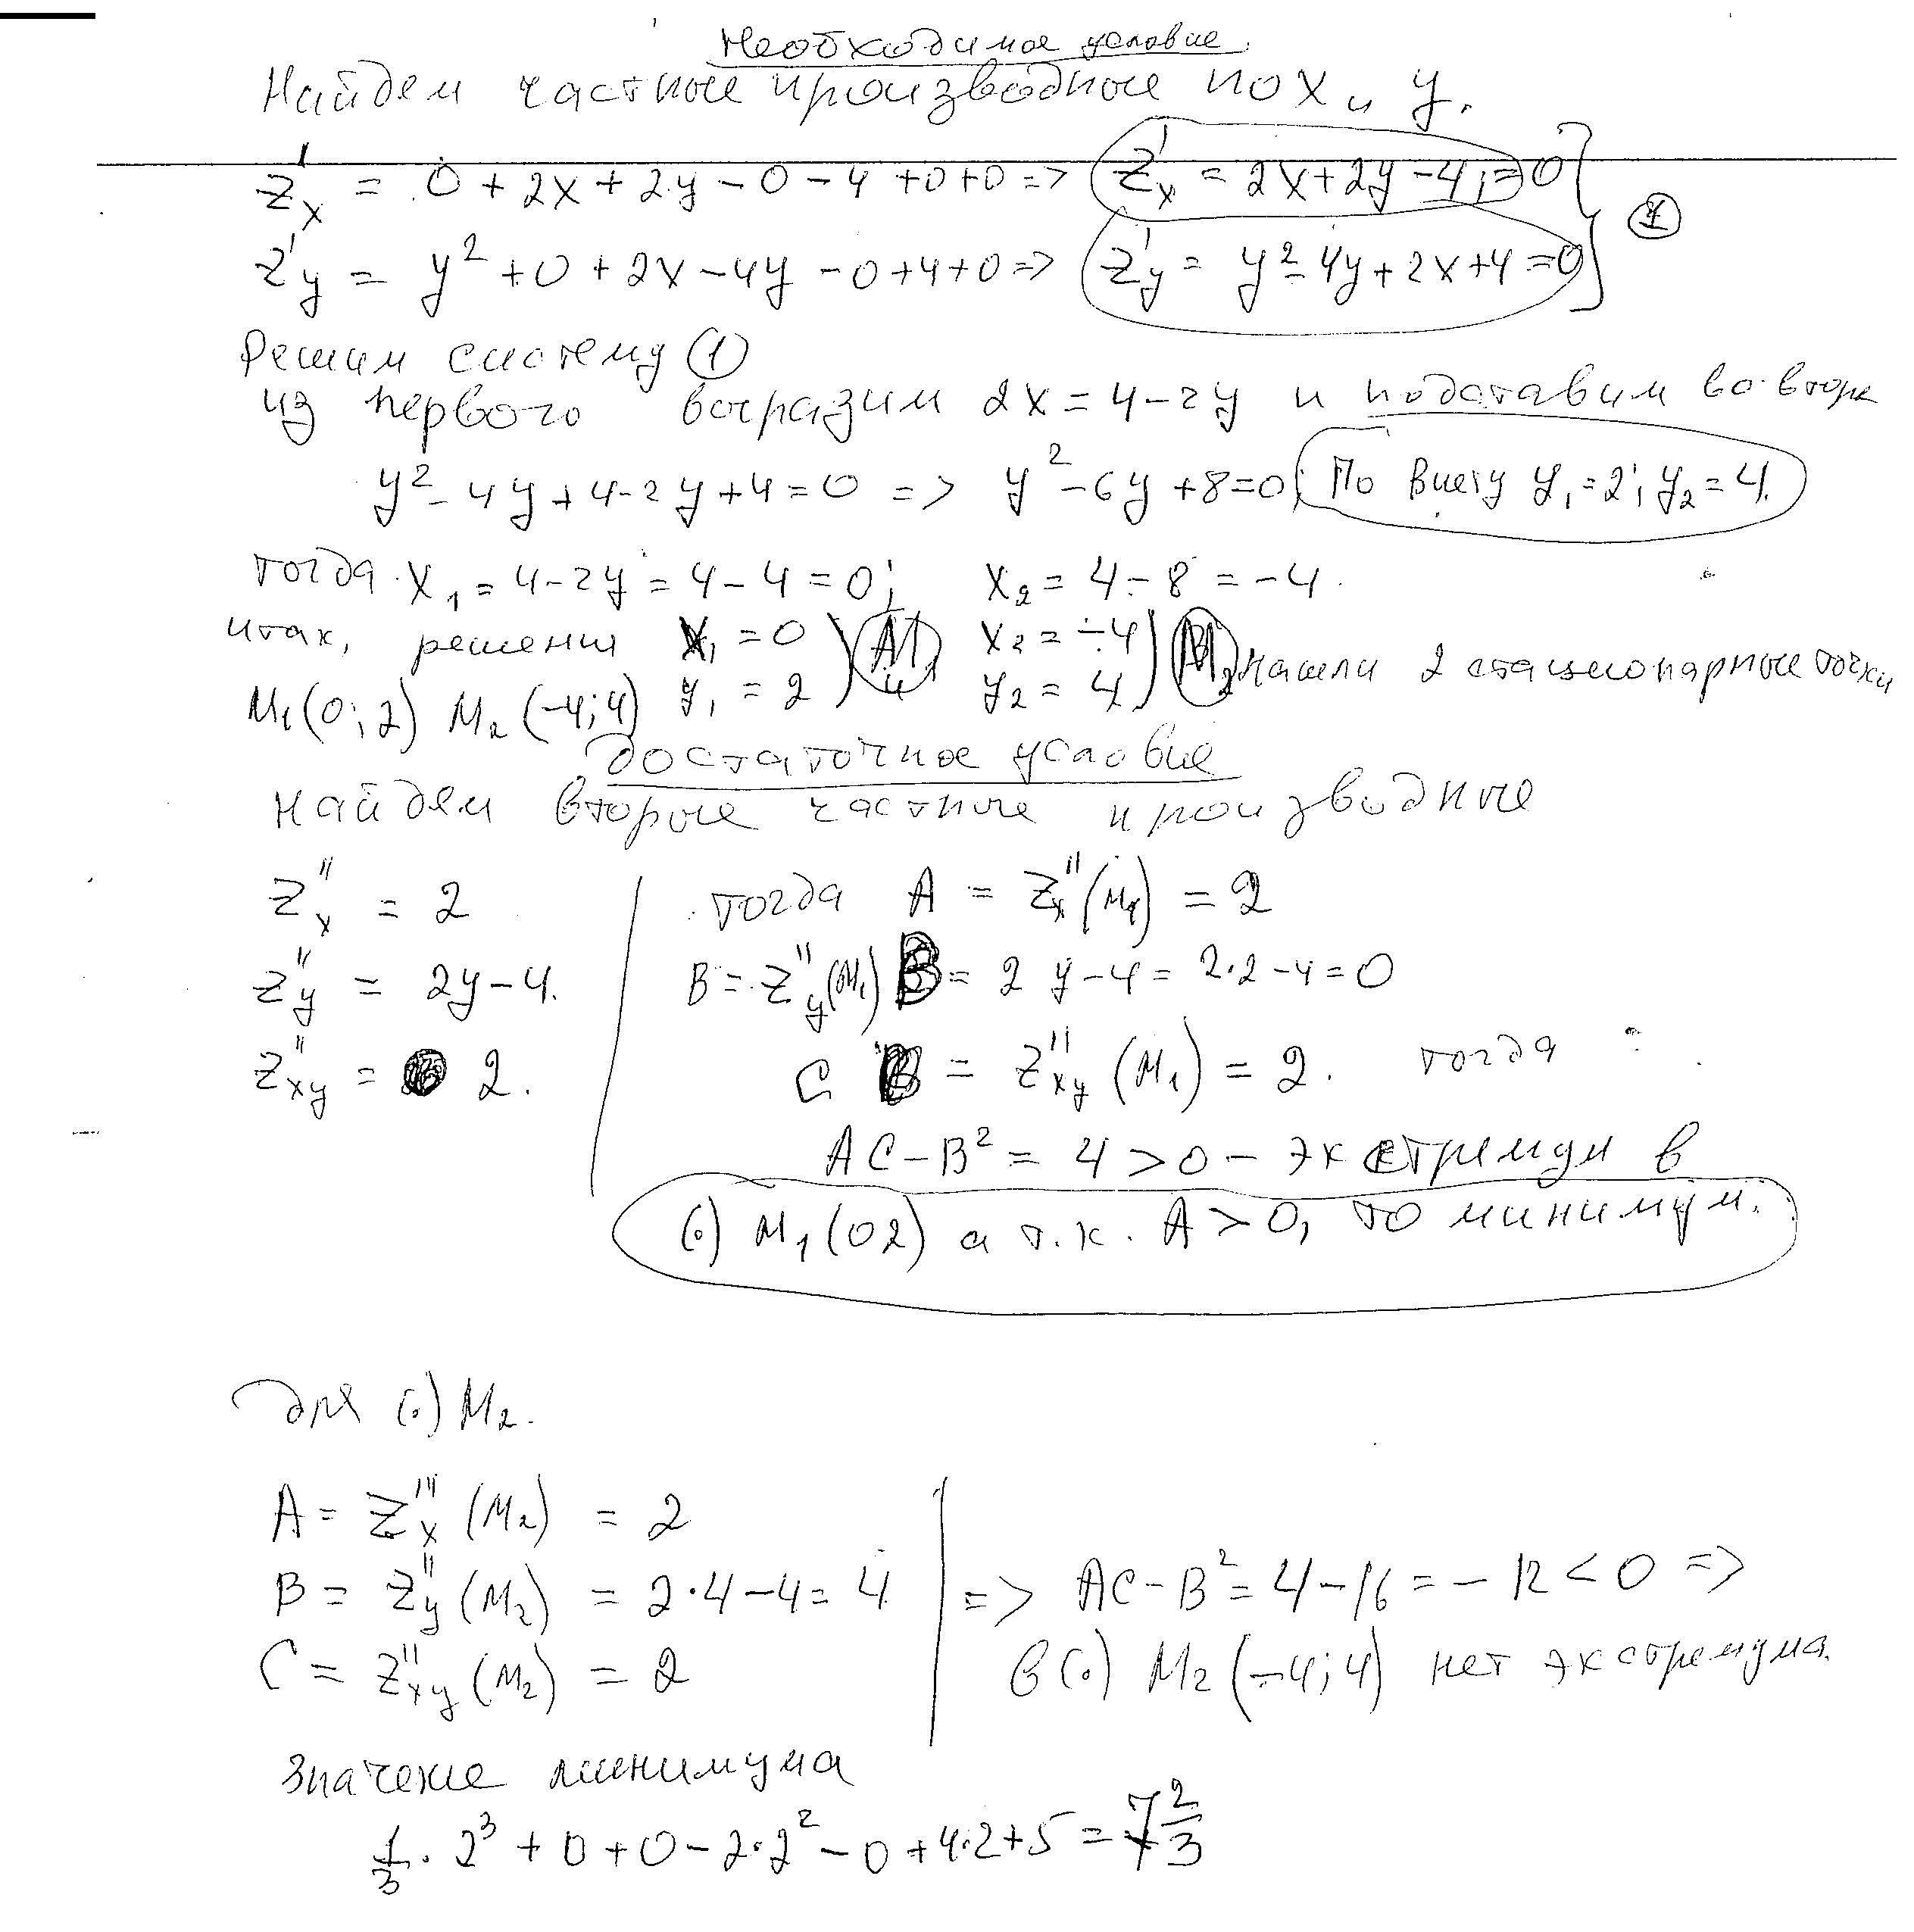 Необходимое условие.
Найдем частные производные по x и y.
z'x = 0 + 2x + 2y - 0 - 4 + 0 + 0 => z'x = 2x + 2y - 4; = 0
z'y = y² + 0 + 2x - 4y - 0 + 4 + 0 => z'y = y² - 4y + 2x + 4 = 0
Решим систему (1)
из первого выразим 2x = 4 - 2y и подставим во втор
y² - 4y + 4 - 2y + 4 = 0 => y² - 6y + 8 = 0; По Виету y₁ = 2; y₂ = 4.
тогда x₁ = 4 - 2y = 4 - 4 = 0; x₂ = 4 - 8 = -4.
итак, решения x₁ = 0 M₁ x₂ = -4 M₂ нашли 2 стационарные точки
y₁ = 2 y₂ = 4
M₁(0; 2) M₂(-4; 4)
Достаточное условие
Найдем вторые частные производные
z''x = 2 тогда A = z''x(M₁) = 2
z''y = 2y - 4. B = z''y(M₁) = 2y - 4 = 2·2 - 4 = 0
z''xy = 2. C = z''xy(M₁) = 2. тогда:
AC - B² = 4 > 0 - экстремум в
(·) M₁(0 2) а т.к. A > 0, то минимум.
для (·) M₂.
A = z'''x(M₂) = 2
B = z''y(M₂) = 2·4 - 4 = 4 => AC - B² = 4 - 16 = -12 < 0 =>
C = z''xy(M₂) = 2 в (·) M₂(-4; 4) нет экстремума.
Значение минимума
1/3 · 2³ + 0 + 0 - 2·2² - 0 + 4·2 + 5 = 7 2/3